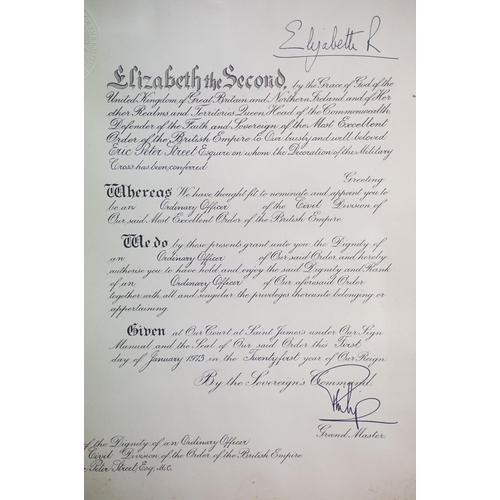 Elizabeth R
Elizabeth the Second, by the Grace of God of the
United Kingdom of Great Britain and Northern Ireland and of Her
other Realms and Territories Queen, Head of the Commonwealth,
Defender of the Faith and Sovereign of the Most Excellent
Order of the British Empire to Our trusty and well beloved
Eric Peter Street Esquire on whom the Decoration of the Military
Cross has been conferred
Greeting
Whereas We have thought fit to nominate and appoint you to
be an Ordinary Officer of the Civil Division of
Our said Most Excellent Order of the British Empire
We do by these presents grant unto you the Dignity of
an Ordinary Officer of Our said Order and hereby
authorise you to have hold and enjoy the said Dignity and Rank
of an Ordinary Officer of Our aforesaid Order
together with all and singular the privileges thereunto belonging or
appertaining.
Given at Our Court at Saint James's under Our Sign
Manual and the Seal of Our said Order this First
day of January 1973 in the Twenty first year of Our Reign
By the Sovereign's Command.
Philip
Grand Master
of the Dignity of an Ordinary Officer
Civil Division of the Order of the British Empire
Peter Street, Esq. M.C.